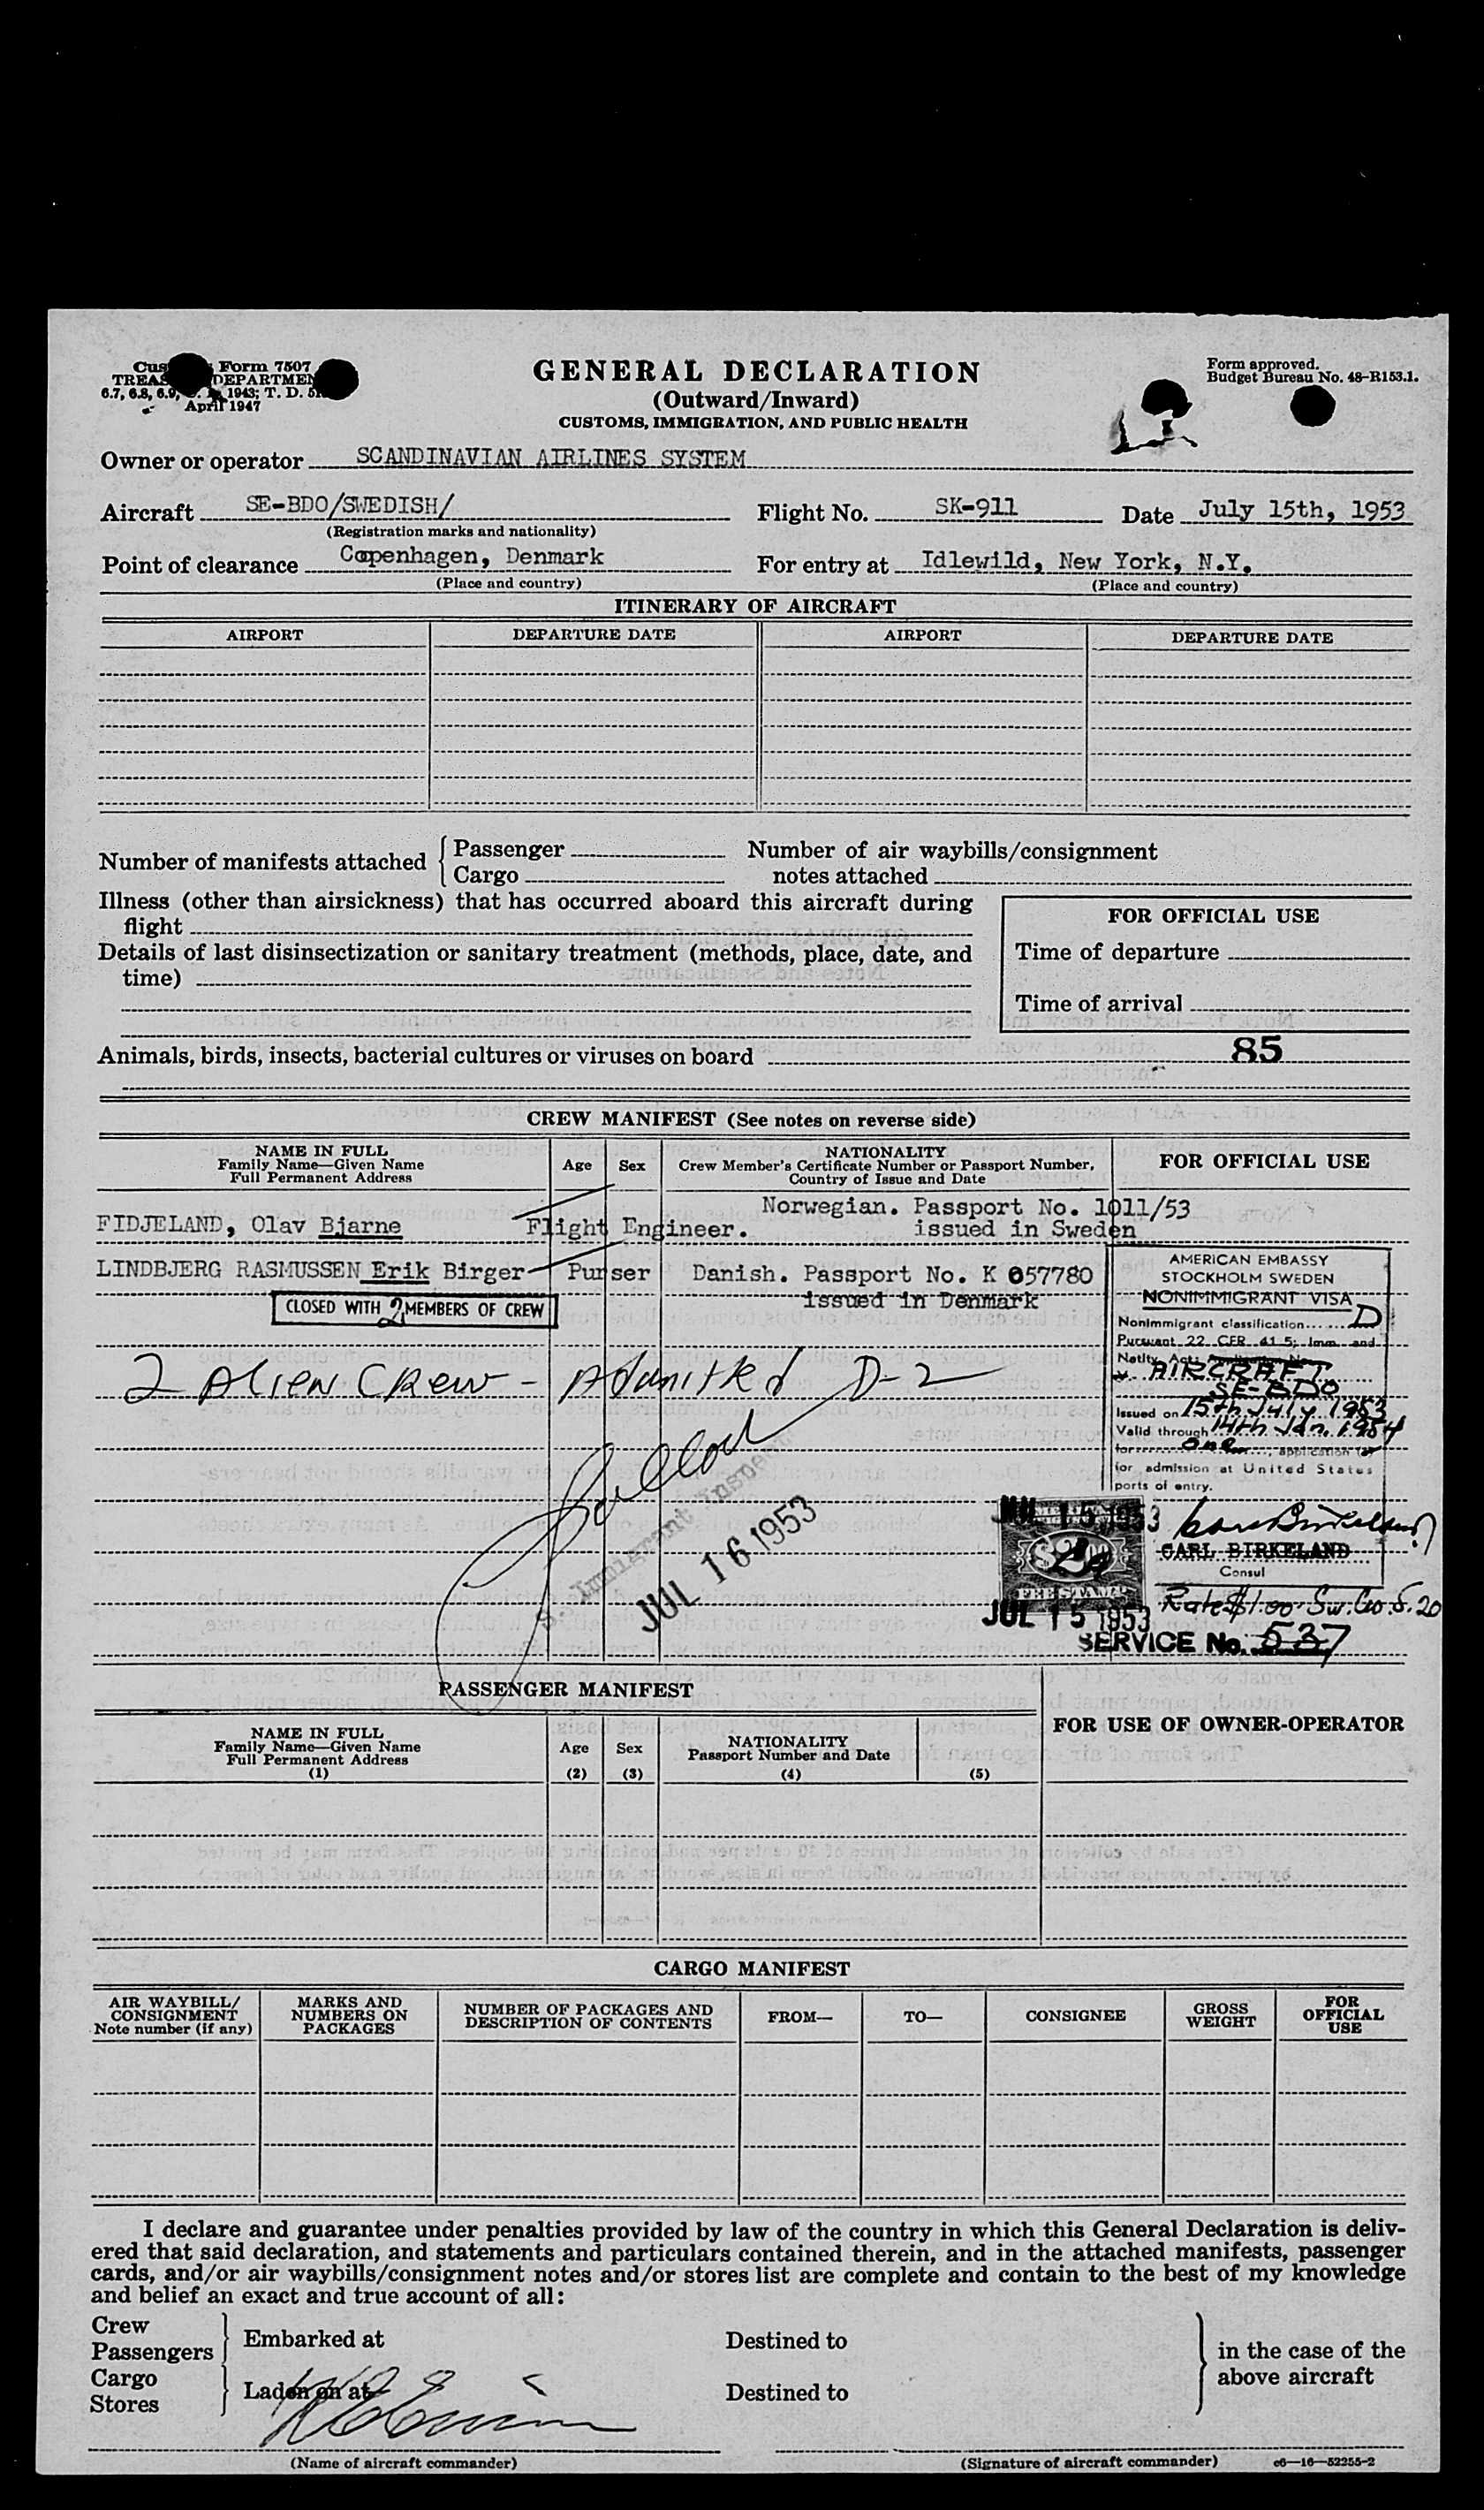 Form 7507
DEPARTMEN
6.7, 6.8, 6.9, 1943; T. D.
April 1947
GENERAL DECLARATION
(Outward/Inward)
CUSTOMS, IMMIGRATION, AND PUBLIC HEALTH
Form approved.
Budget Bureau No. 48-R153.1.
Owner or operator SCANDINAVIAN AIRLINES SYSTEM
Aircraft SE-BDO/SWEDISH/ Flight No. SK-911 Date July 15th, 1953
(Registration marks and nationality)
Point of clearance Copenhagen, Denmark For entry at Idlewild, New York, N.Y.
(Place and country) (Place and country)
ITINERARY OF AIRCRAFT
AIRPORT DEPARTURE DATE AIRPORT DEPARTURE DATE
Number of manifests attached { Passenger
Cargo
Number of air waybills/consignment
notes attached
Illness (other than airsickness) that has occurred aboard this aircraft during
flight
Details of last disinsectization or sanitary treatment (methods, place, date, and
time)
FOR OFFICIAL USE
Time of departure
Time of arrival
Animals, birds, insects, bacterial cultures or viruses on board 85
CREW MANIFEST (See notes on reverse side)
NAME IN FULL
Family Name—Given Name
Full Permanent Address
Age
Sex
NATIONALITY
Crew Member's Certificate Number or Passport Number,
Country of Issue and Date
FOR OFFICIAL USE
Norwegian. Passport No. 1011/53
FIDJELAND, Olav Bjarne Flight Engineer. issued in Sweden
LINDBJERG RASMUSSEN Erik Birger Purser Danish. Passport No. K 057780
issued in Denmark
CLOSED WITH 2 MEMBERS OF CREW
2 Alien Crew - Admitted D-2
Immigrant Inspector
JUL 16 1953
AMERICAN EMBASSY
STOCKHOLM SWEDEN
NONIMMIGRANT VISA
Nonimmigrant classification D
Pursuant 22 CFR 41.5; Imm. and
Natlty. Act;
AIRCRAFT
SE-BDO
Issued on 15th July 1953
Valid through 14th Jan. 1954
for one, application for
for admission at United States
ports of entry.
JUL 15 1953
$2.00
FEE STAMP
JUL 15 1953
CARL BIRKELAND
Consul
Rate $1.00 Sw. Cr. 5.20
SERVICE No. 537
PASSENGER MANIFEST
NAME IN FULL
Family Name—Given Name
Full Permanent Address
(1)
Age
(2)
Sex
(3)
NATIONALITY
Passport Number and Date
(4)
(5)
FOR USE OF OWNER-OPERATOR
CARGO MANIFEST
AIR WAYBILL/
CONSIGNMENT
Note number (if any)
MARKS AND
NUMBERS ON
PACKAGES
NUMBER OF PACKAGES AND
DESCRIPTION OF CONTENTS
FROM—
TO—
CONSIGNEE
GROSS
WEIGHT
FOR
OFFICIAL
USE
I declare and guarantee under penalties provided by law of the country in which this General Declaration is deliv-
ered that said declaration, and statements and particulars contained therein, and in the attached manifests, passenger
cards, and/or air waybills/consignment notes and/or stores list are complete and contain to the best of my knowledge
and belief an exact and true account of all:
Crew
Passengers } Embarked at Destined to
Cargo
Stores } Laden on at Destined to
} in the case of the
above aircraft
(Name of aircraft commander) (Signature of aircraft commander) c6—16—52255-2